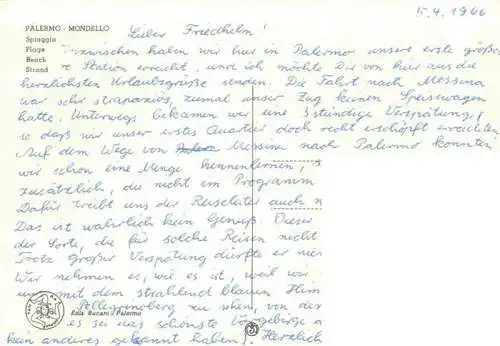 5.4.1966
PALERMO - MONDELLO
Spiaggia
Plage
Beach
Strand
Lieber Friedhelm!
Inzwischen haben wir hier in Palermo unsere erste größe-
re Station erreicht, und ich möchte Dir von hier aus die
herzlichsten Urlaubsgrüße senden. Die Fahrt nach Messina
war sehr strapaziös, zumal unser Zug keinen Speisewagen
hatte. Unterwegs bekamen wir eine 3stündige Verspätung,
so daß wir unser erstes Quartier doch recht erschöpft erreichten
Auf dem Wege von Messina nach Palermo konnten
wir schon eine Menge kennenlernen,
zusätzlich, die nicht im Programm
Dafür treibt uns der Reiseleiter auch n
Das ist wahrlich kein Genuß. Dieser
der Sorte, die für solche Reisen nicht
Trotz großer Verspätung dürfte er nie
Wir nehmen es, wie es ist, weil wir
uns mit dem strahlend blauen Him
Pellegrinoberg zu sehen, von de
es sei das schönste Vorgebirge
kein anderes gekannt haben). Herzlich
Ediz. Bucaro - Palermo